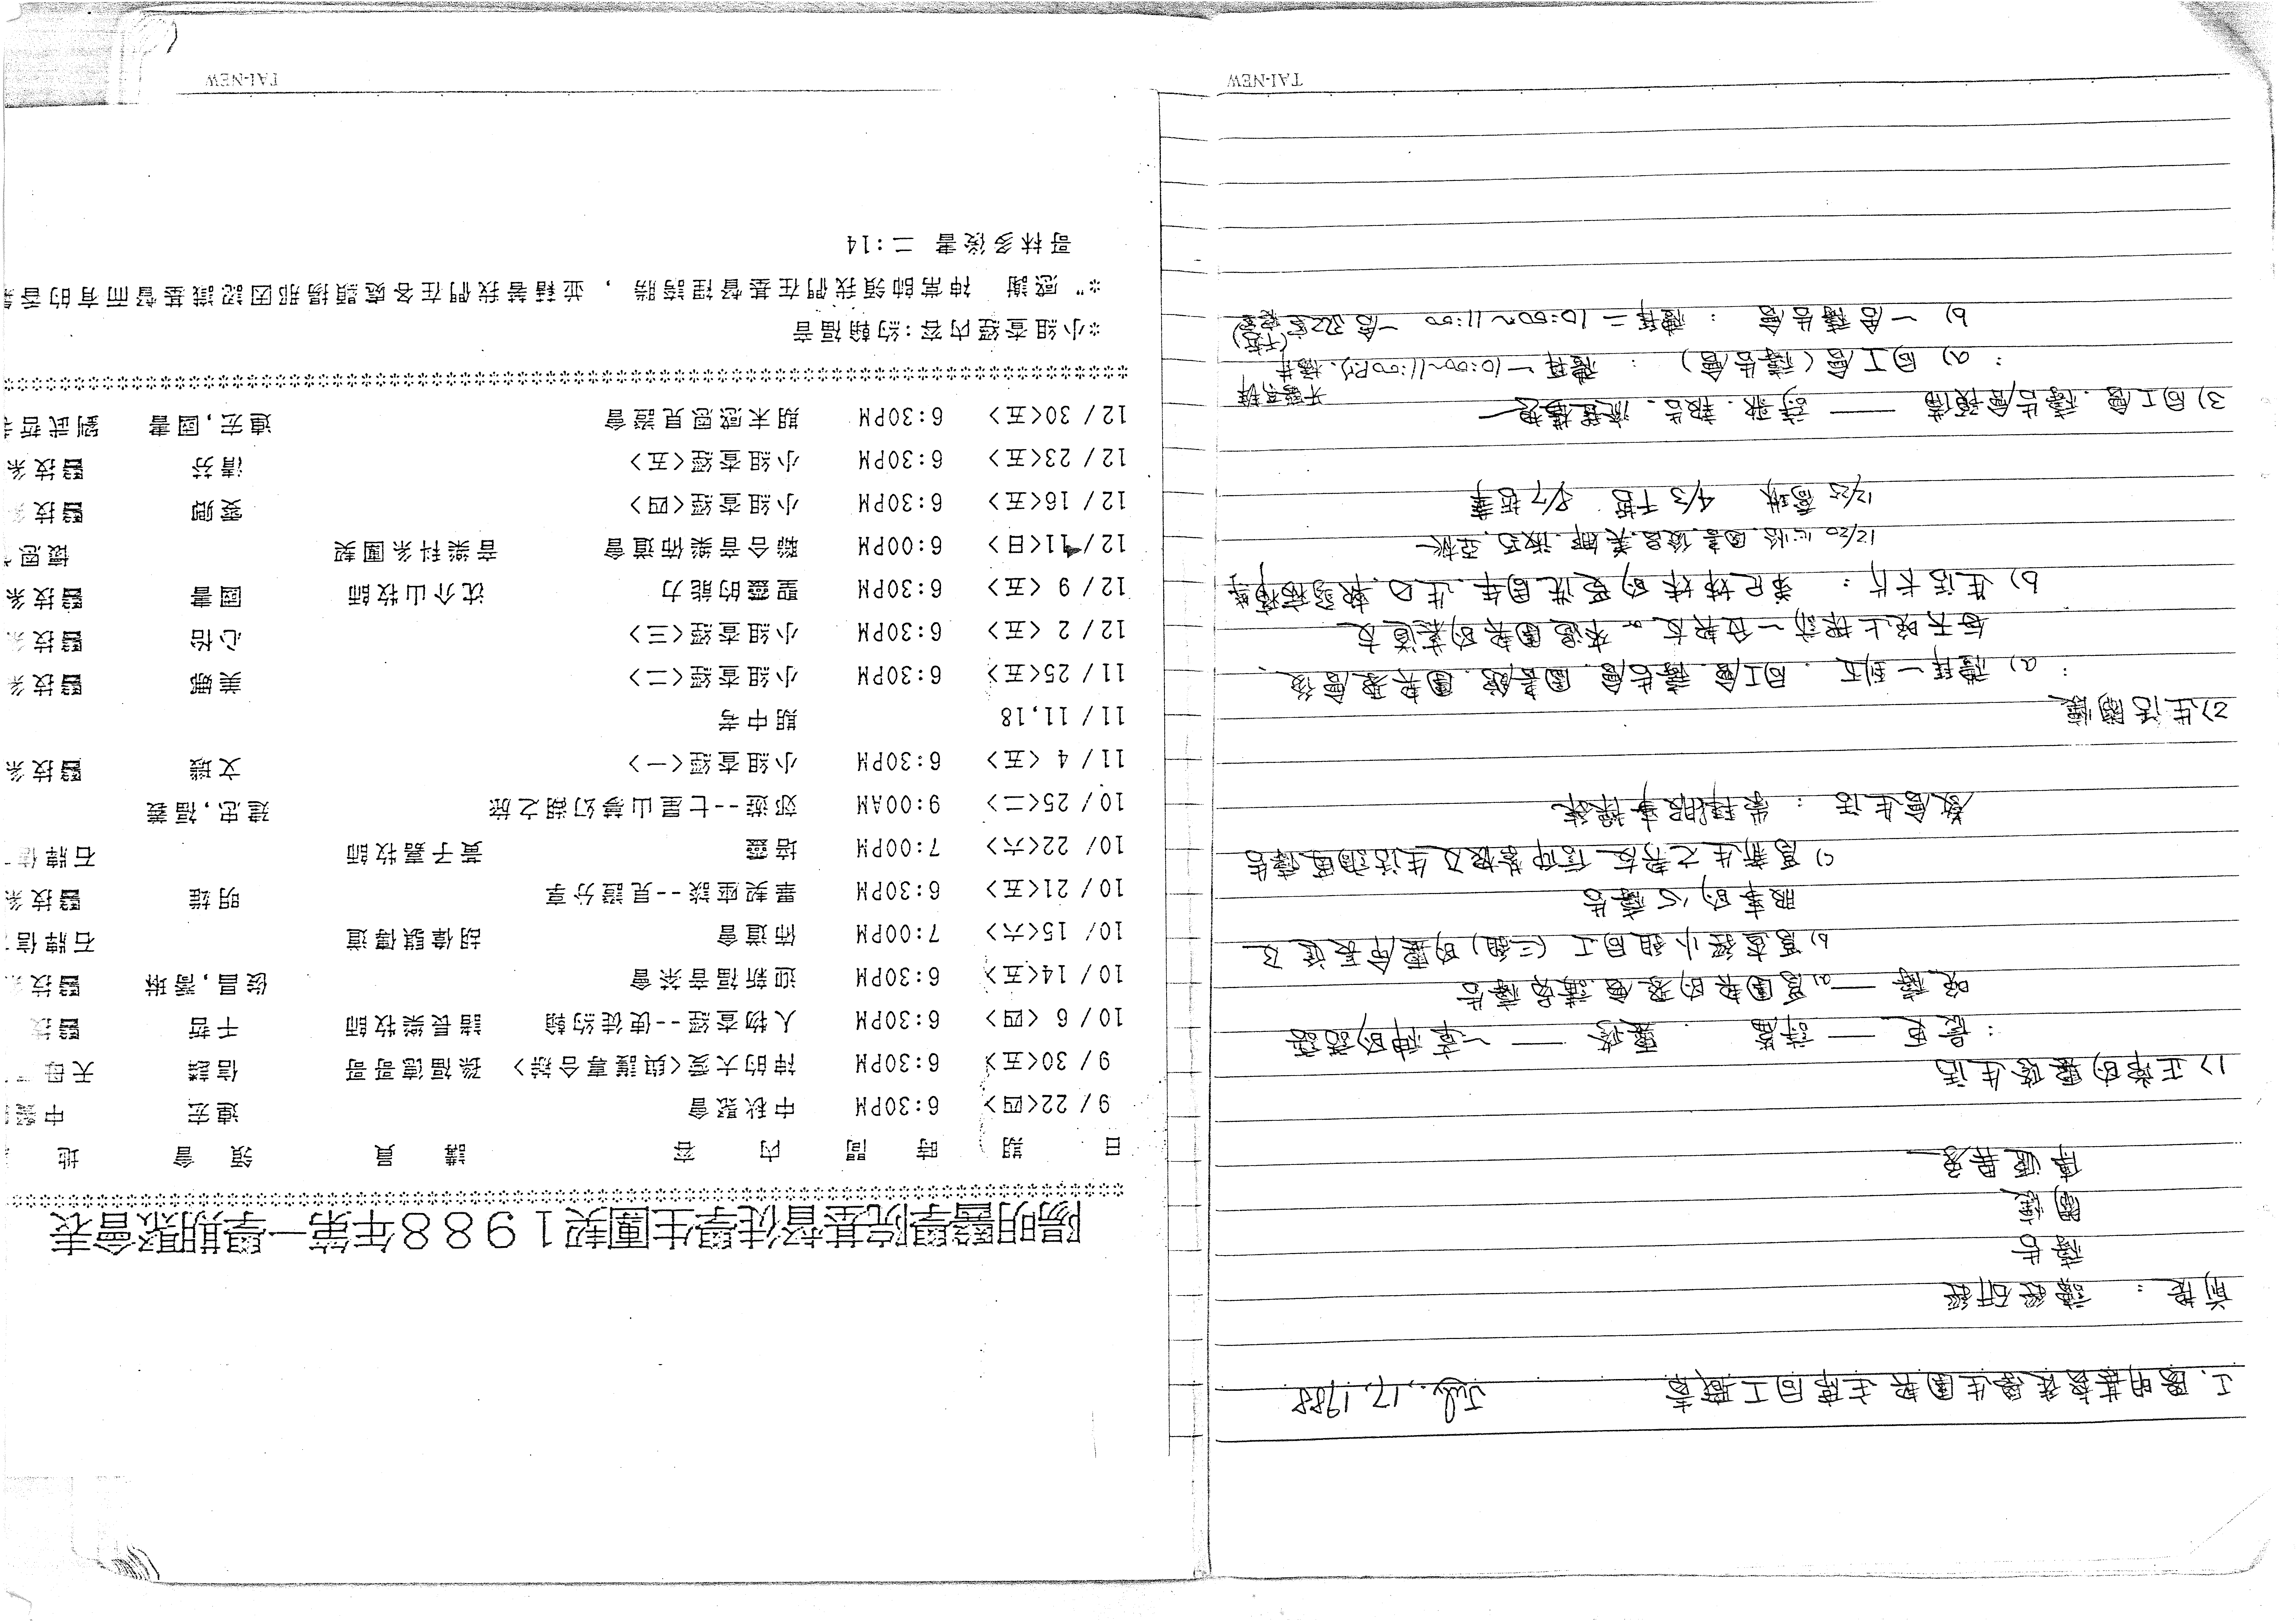 I. 陽明基督徒學生團契主席同工職責 July. 17, 1988
前提： 讀經研經
禱告
關懷
傳遞異象
1) 正常的靈修生活
：晨更 — 詩篇 . 靈修 — 神的話語
晚禱 — a) 為團契的聚會、講員禱告
b) 為查經小組同工（三組）的靈命長進及
服事的心禱告
c) 為新生之契友信仰教牧及生活適應禱告
教會生活 ： 崇拜服事操練
2) 生活關懷
： a) 禮拜一到五．同工會．禱告會．圖書館．團契聚會後、
每天晚上探訪一位契友 or 來過團契的慕道友
b) 生活卡片： 弟兄姊妹的受洗周年、生日、
12/20 心怡、國書、俊昌、美娜、淑巧、亞秋
12/25 喬琳 4/3 千哲 8/7 哲事
3) 同工會．禱告會預備 — 詩歌．報告．流程
： a) 同工會（禱告會）： 禮拜一 10:00~11:00 P.M.
b) 一舍禱告會 ： 禮拜二 10:00~11:00 一舍322室
TAI-NEW
陽明醫學院基督徒學生團契1988年第一學期聚會表
日 期 時 間 內 容 講 員 領 會 地
9/22<四> 6:30PM 中秋聚會 連宏 中
9/30<五> 6:30PM 神的大愛<與護專合辦> 孫福德哥哥 信誠 天母
10/ 6 <四> 6:30PM 人物查經--使徒約翰 諸長樂牧師 千哲 醫技
10/14<五> 6:30PM 迎新福音茶會 俊昌,喬琳 醫技
10/15<六> 7:00PM 佈道會 胡偉騏傳道 石牌信
10/21<五> 6:30PM 畢契座談--見證分享 明雄 醫技系
10/22<六> 7:00PM 培靈 黃子嘉牧師 石牌信
10/25<二> 9:00AM 郊遊--七星山夢幻湖之旅 建忠,福義
11/ 4 <五> 6:30PM 小組查經<一> 文瑞 醫技系
11/ 11,18 期中考
11/25<五> 6:30PM 小組查經<二> 美娜 醫技系
12/ 2 <五> 6:30PM 小組查經<三> 心怡 醫技系
12/ 9 <五> 6:30PM 聖靈的能力 沈介山牧師 國書 醫技系
12/11<日> 6:00PM 聯合音樂佈道會 音樂科系團契 懷恩
12/16<五> 6:30PM 小組查經<四> 雯卿 醫技
12/23<五> 6:30PM 小組查經<五> 清芬 醫技系
12/30<五> 6:30PM 期末感恩見證會 連宏,國書 劉武哲
*小組查經內容:約翰福音
*" 感謝 神常帥領我們在基督裡誇勝 , 並藉著我們在各處顯揚那因認識基督而有的香
哥林多後書 二:14
TAI-NEW